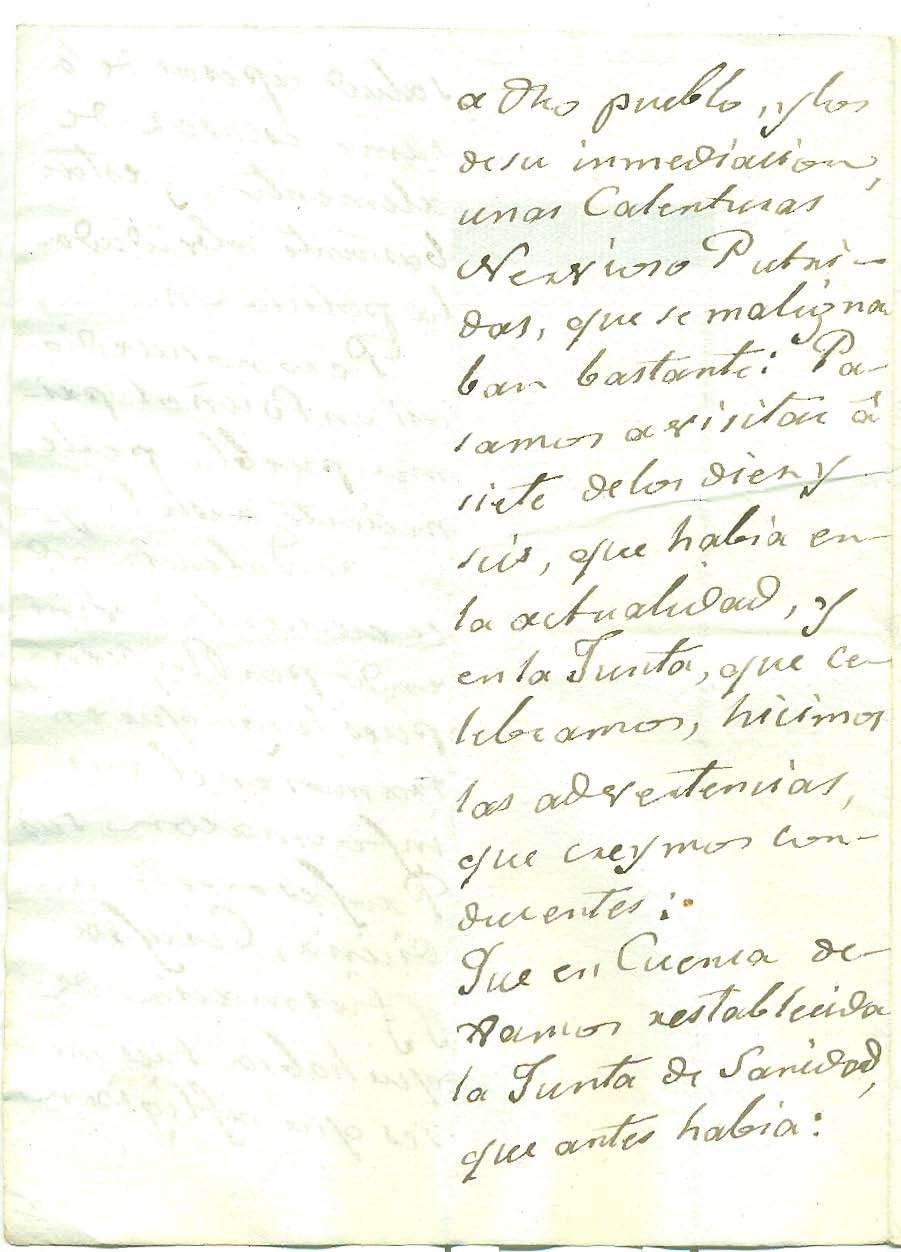 a dho pueblo, y los
de su inmediacion,
unas Calenturas
Nervioso Putri-
das, que se maligna
ban bastante: Pa-
samos a visitar â
siete de los diez y
seis, que habia en
la actualidad, y
en la Junta, que ce-
lebramos, hicimos
las advertencias,
que creymos con-
ducentes:
Que en Cuenca de-
xamos restablecida
la Junta de Sanidad,
que antes habia: